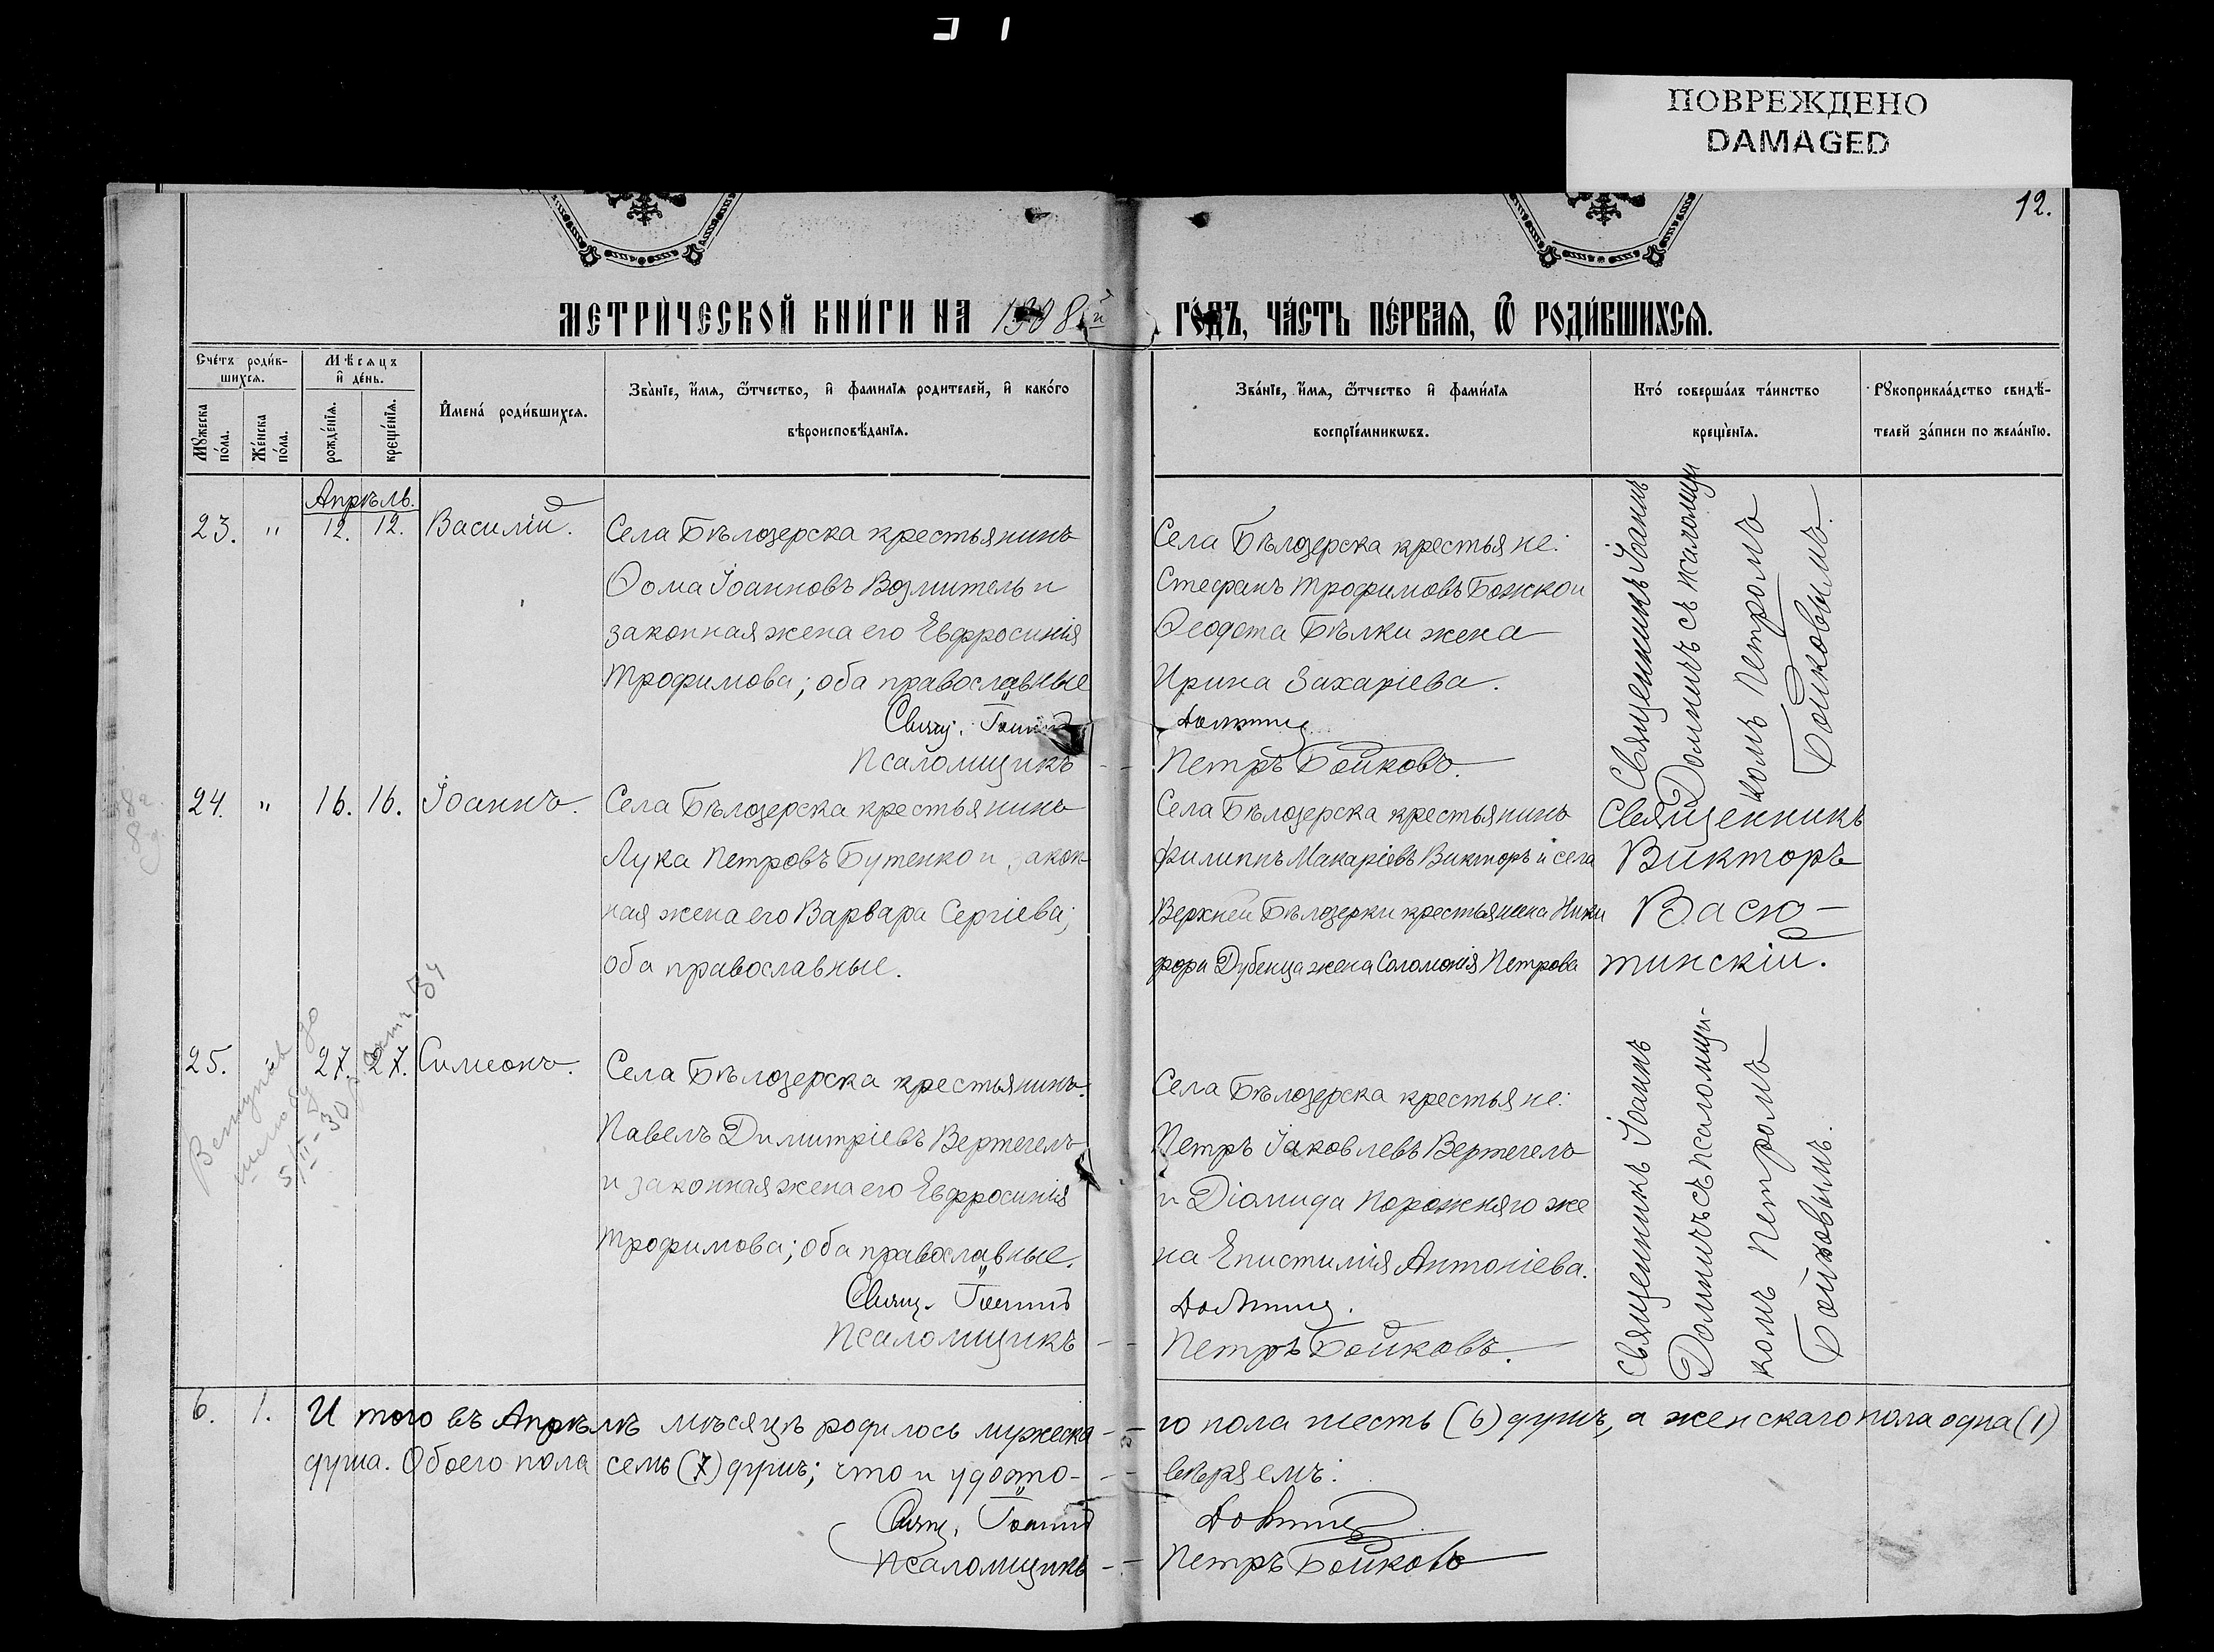 ПОВРЕЖДЕНО
DAMAGED
12.
МЕТРИ́ЧЕСКОЙ КНИ́ГИ НА 1908й
ГО́ДЪ, ЧА́СТЬ ПЕ́РВАЯ, Ѡ РОДИ́ВШИХСЯ.
Сче́тъ роди́в-
шихся.
Мѣ́сяцъ
и де́нь.
Мꙋ́жеска
по́ла.
Же́нска
по́ла.
рожде́нїя.
креще́нїя.
Имена́ роди́вшихся.
Зва́нїе, и́мя, ѻ́тчество, и фами́лїя роди́телей, и како́го
вѣроисповѣ́данїя.
Зва́нїе, и́мя, ѻ́тчество и фами́лїя
воспрїе́мникѡвъ.
Кто́ соверша́лъ та́инство
креще́нїя.
Рꙋкоприкла́дство свидѣ́-
телей за́писи по жела́нїю.
Апрѣль.
23. " 12. 12. Василій.
Села Бѣлозерска крестьянинъ
Ѳома Іоанновъ Возмитель и
законная жена его Евфросинія
Трофимова; оба православные
Свящ. Іоаннъ
Псаломщикъ
Села Бѣлозерска крестьяне:
Стефанъ Трофимовъ Божко и
Ѳеодота Бѣлки жена
Ирина Захаріева.
Долинич
Петръ Бойковъ.
Священникъ Іоаннъ
Долничъ съ псаломщи
комъ Петромъ
Бойковымъ.
24. " 16. 16. Іоаннъ.
Села Бѣлозерска крестьянинъ
Лука Петровъ Бутенко и закон
ная жена его Варвара Сергіева;
оба православные.
Села Бѣлозерска крестьянинъ
Филиппъ Макаріевъ Викторъ и села
Верхней Бѣлозерки крестьянина Ники
фора Дубенца жена Соломонія Петрова
Священникъ
Викторъ
Васю-
тинскій.
25. 27. 27. Симеонъ.
Села Бѣлозерска крестьянинъ
Павелъ Димитріевъ Вертегелъ
и законная жена его Евфросинія
Трофимова; оба православные.
Свящ. Іоаннъ
Псаломщикъ
Села Бѣлозерска крестьяне:
Петръ Іаковлевъ Вертегелъ
и Діомида Порожняго же
на Епистимія Антоніева.
Петръ Бойковъ.
Священникъ Іоаннъ
Долничъ съ псаломщи-
комъ Петромъ
Бойковымъ.
6. 1. И того въ Апрѣлѣ мѣсяцѣ родилось мужеска
го пола шесть (6) душъ, а женскаго пола одна (1)
душа. Обоего пола семь (7) душъ; что и удосто-
вѣряемъ:
Свящ. Іоаннъ
Псаломщикъ
Петръ Бойковъ